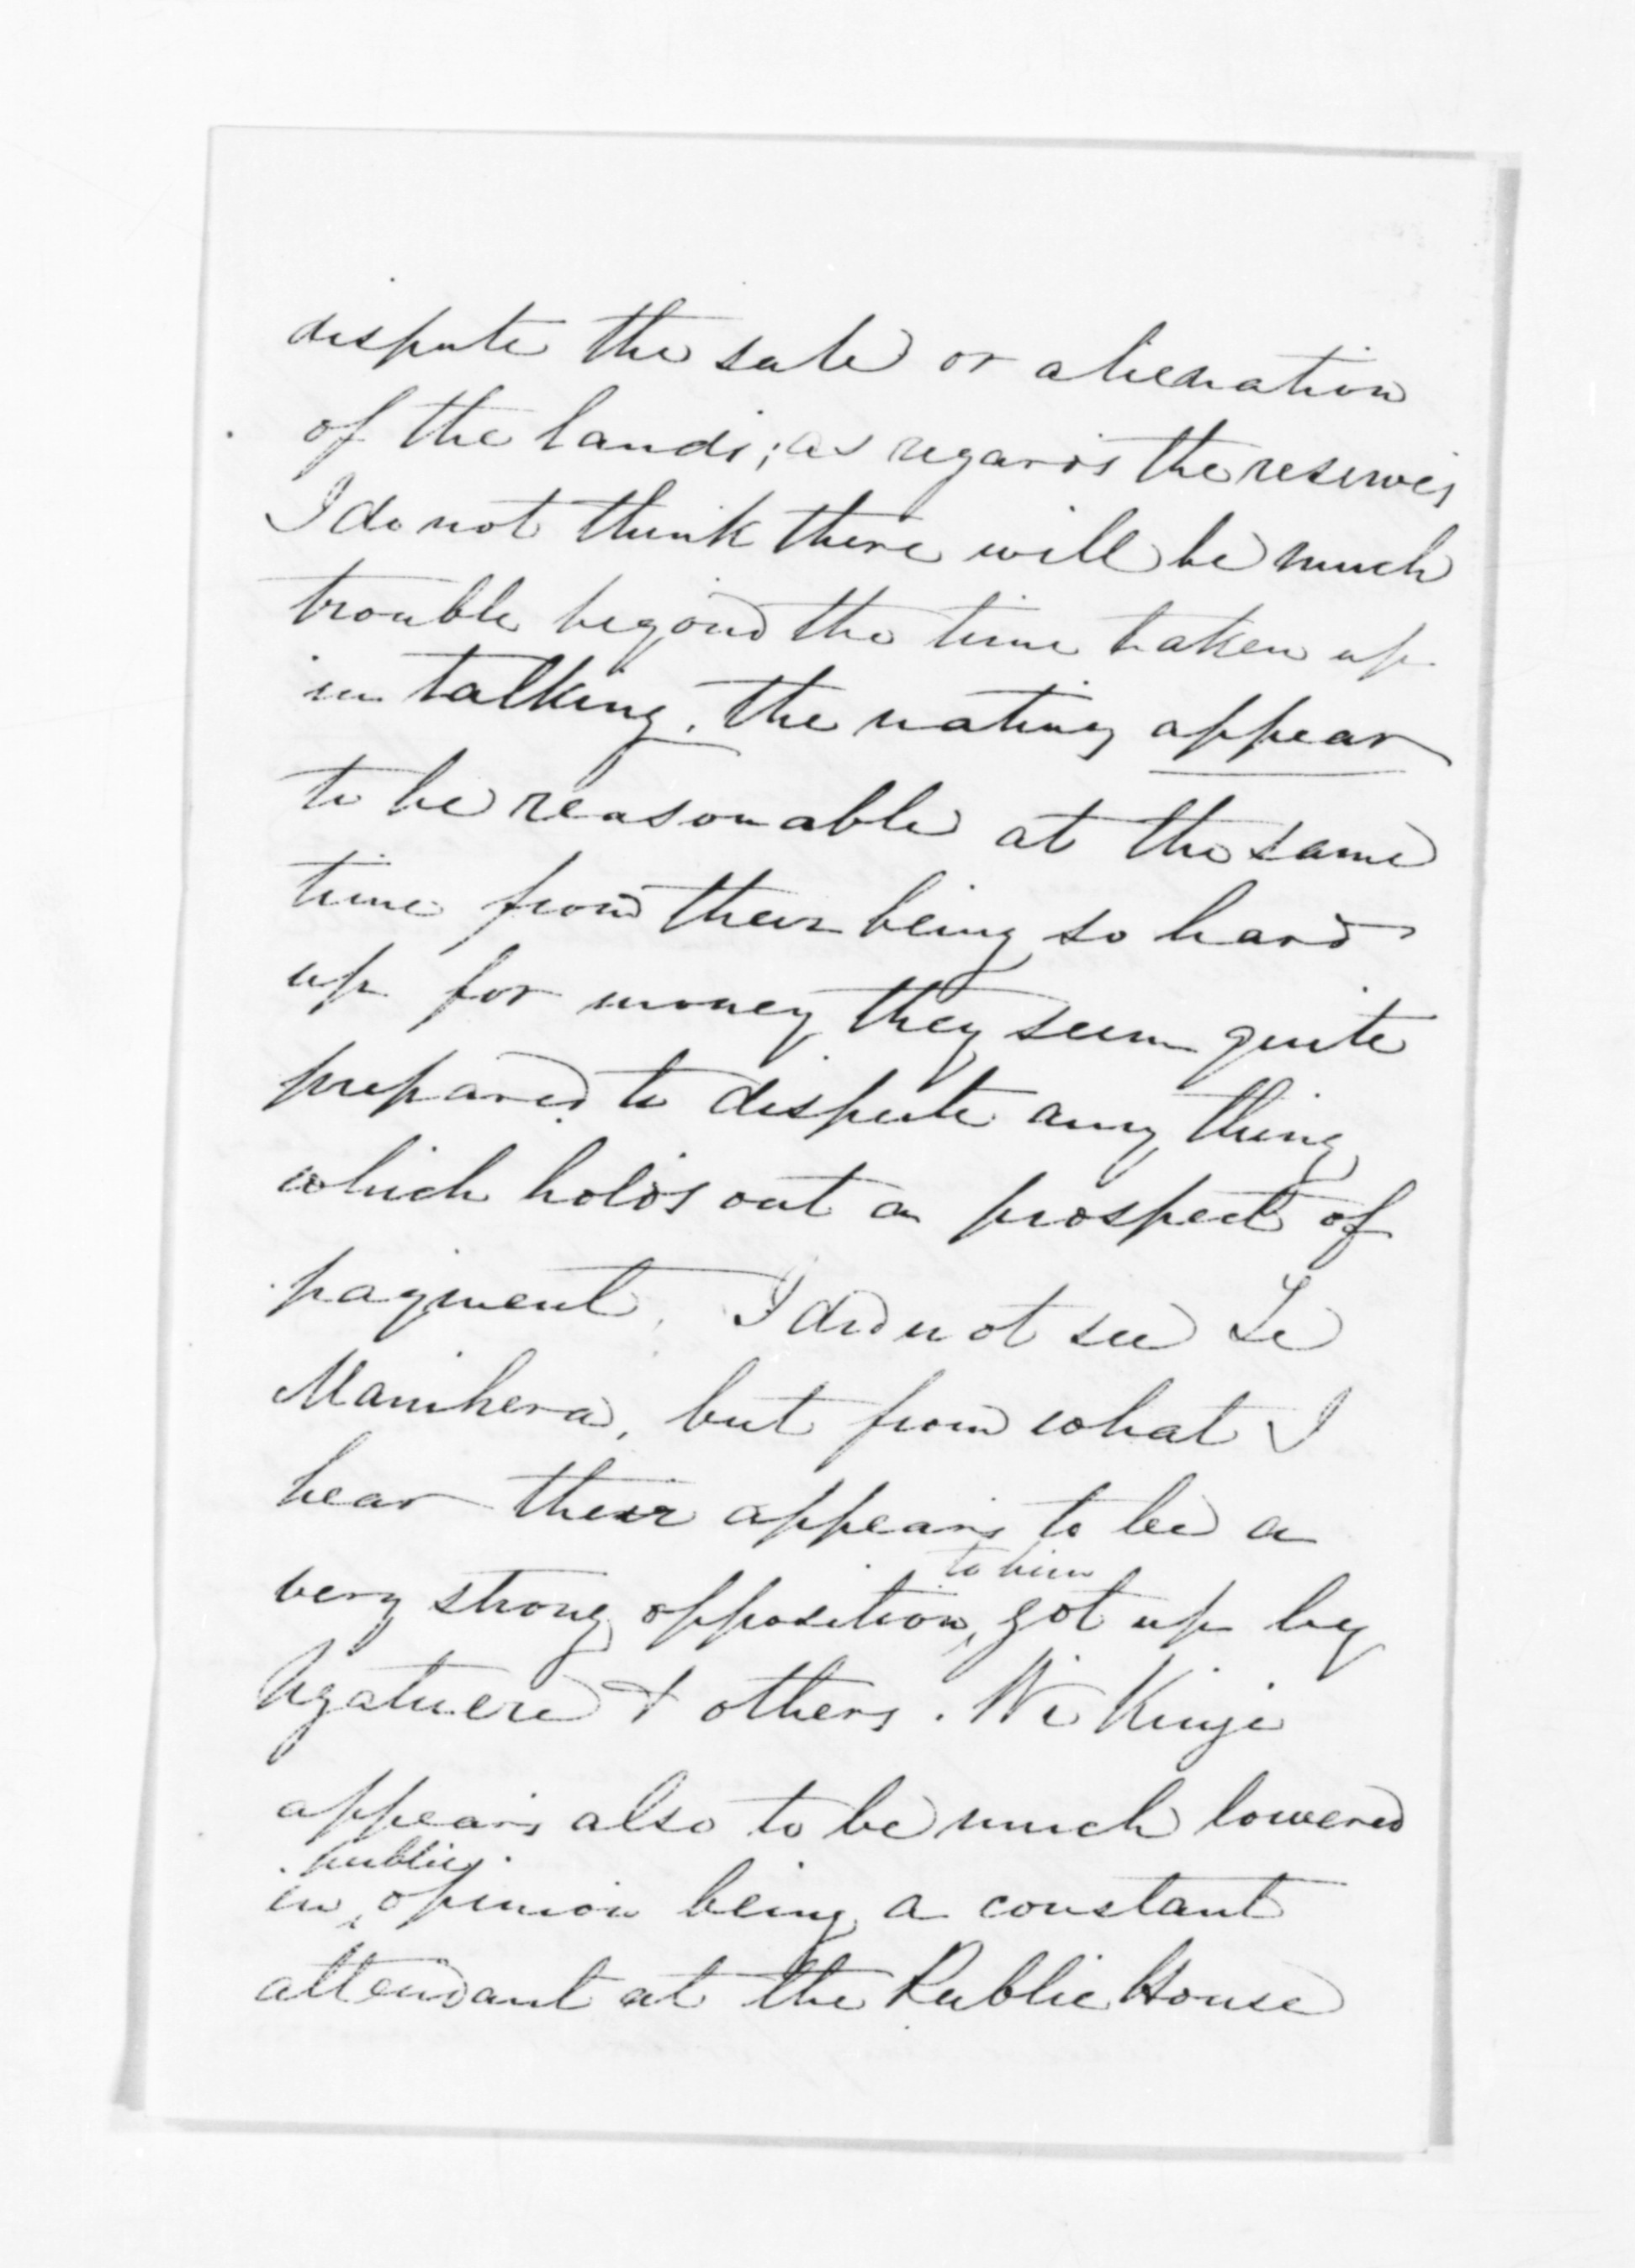 dispute the sale or alienation
of the lands; as regards the reserves
I do not think there will be much
trouble beyond the time taken up
in talking. the natives appear
to be reasonable at the same
time from their being so hard
up for money they seem quite
prepared to dispute any thing
which holds out a prospect of
payment. I did not see Te
Manihera, but from what I
hear their appears to be a
to him
very strong opposition, got up by
Ngatuere & others. Wi Kingi
appears also to be much lowered
public
in opinion being a constant
attendant at the Public House